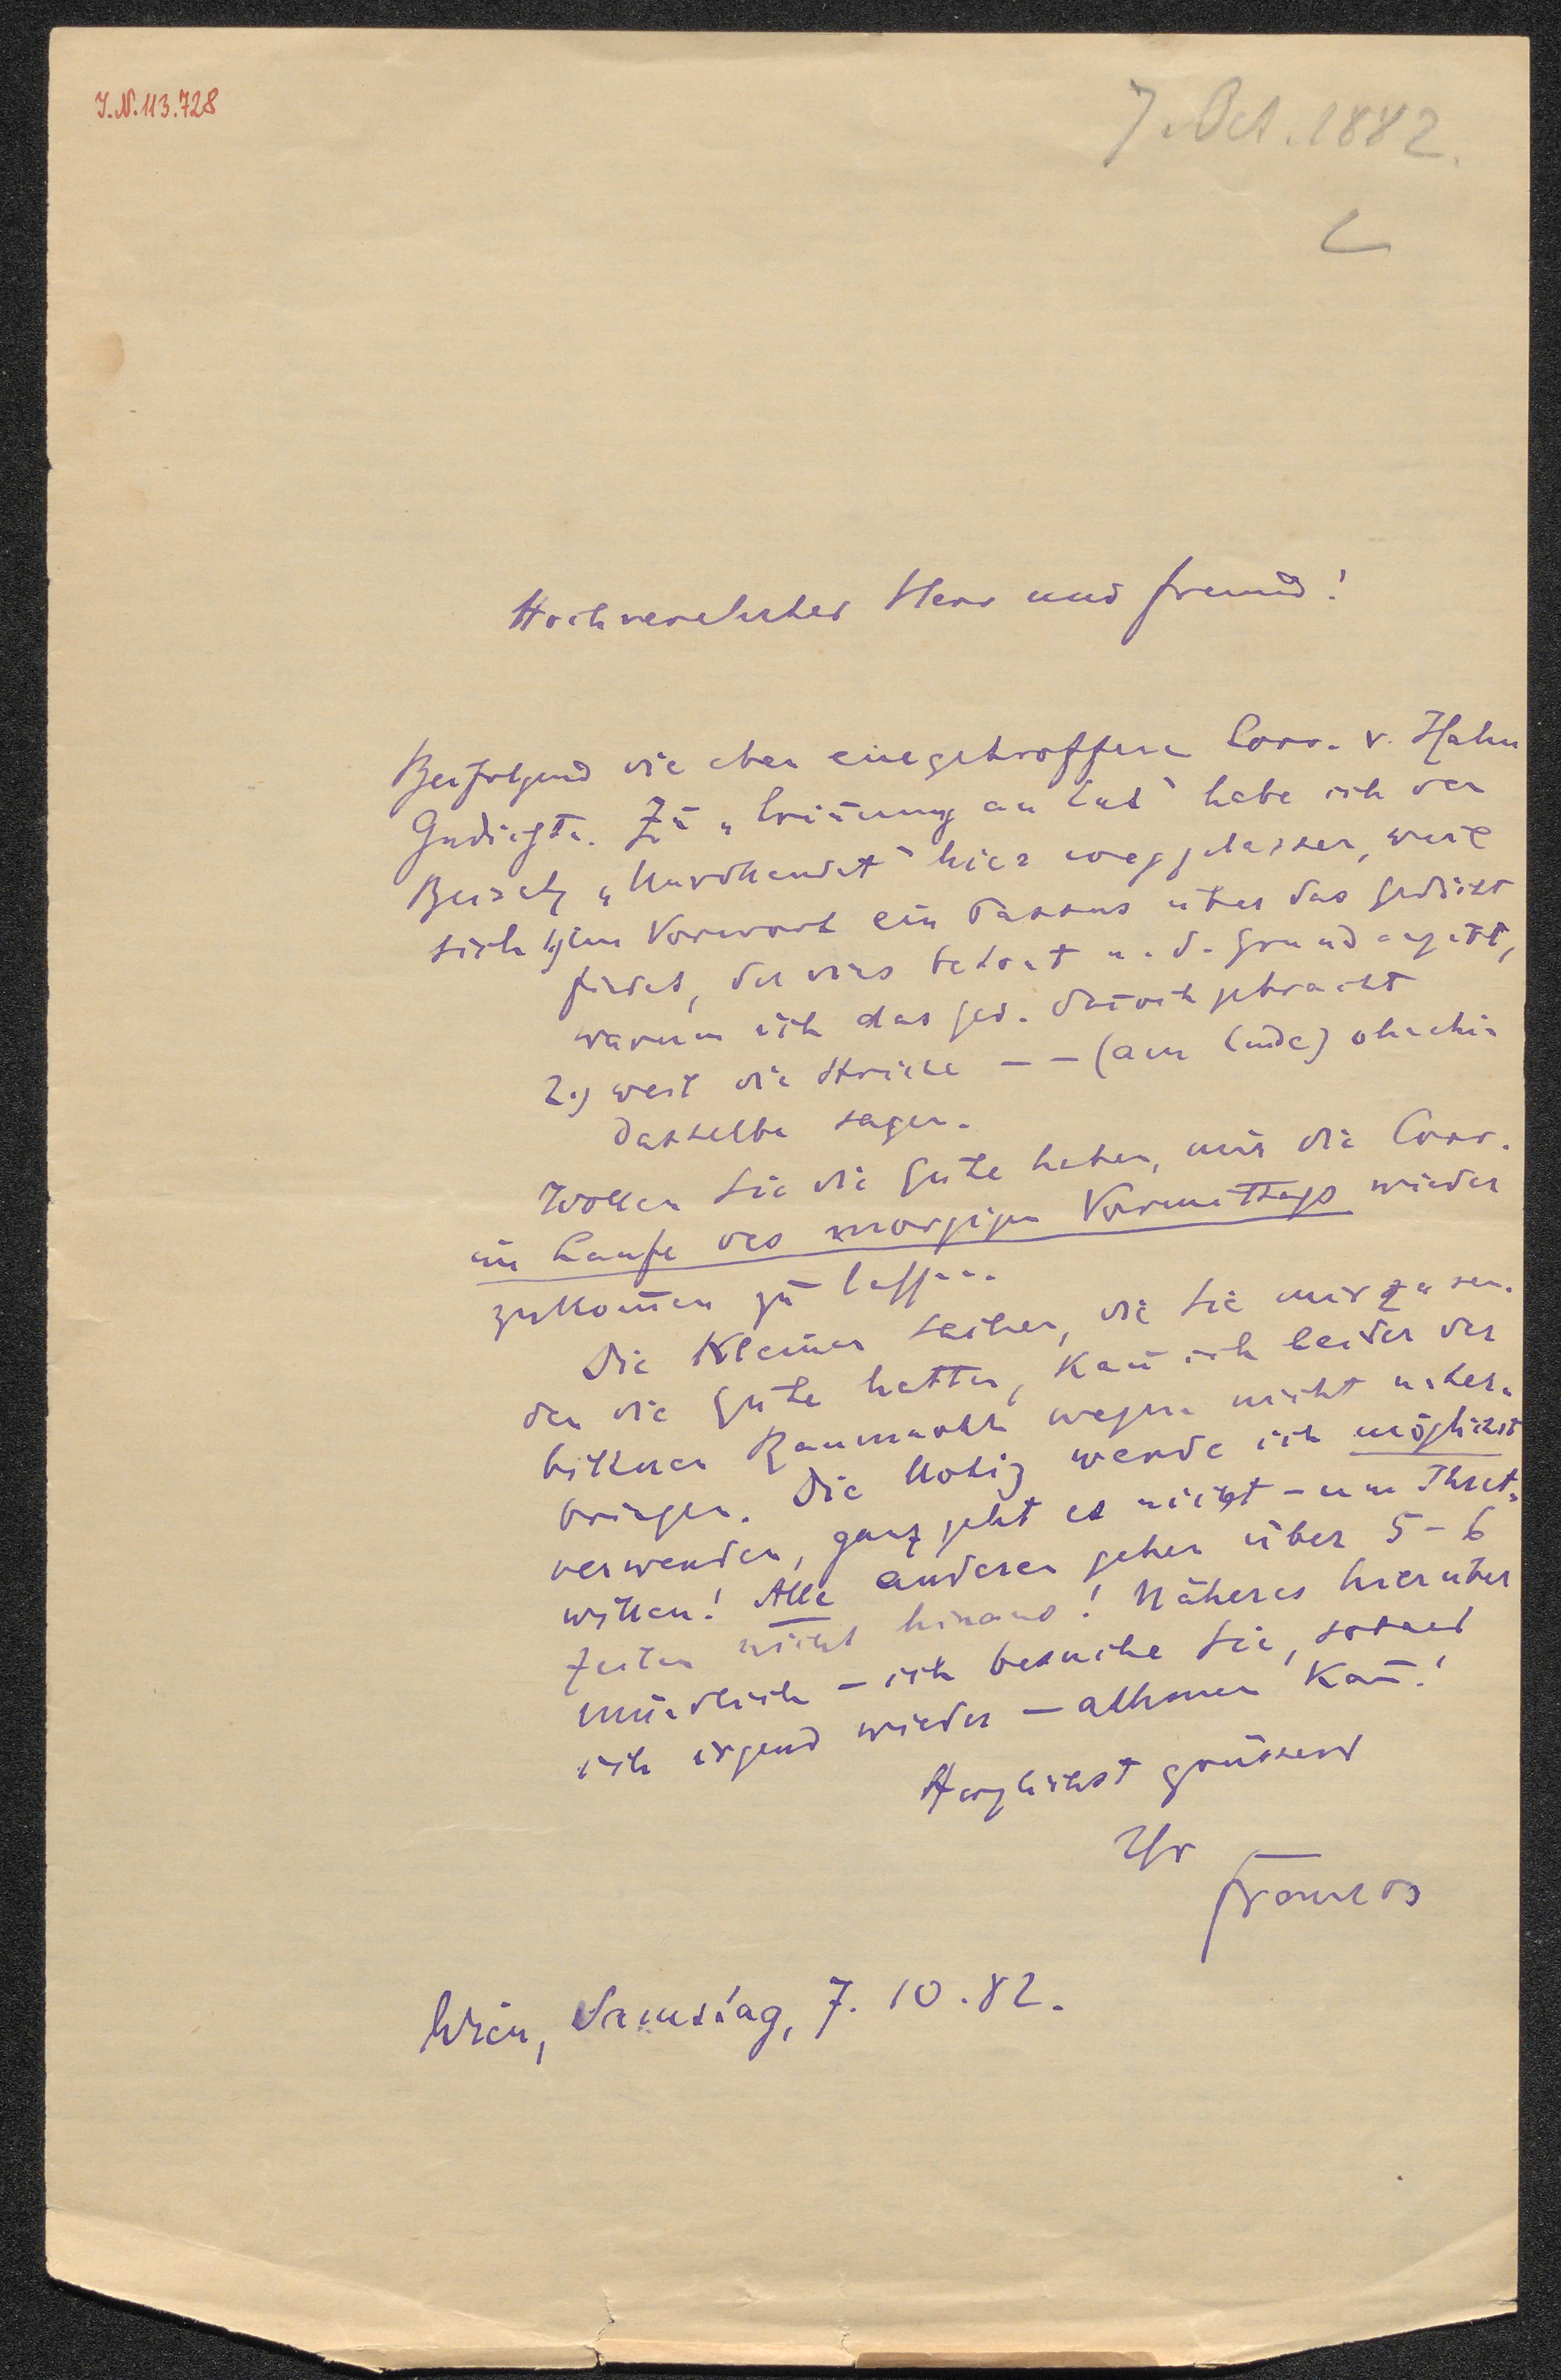 J.N. 113.728
7. Oct. 1882.
Hochverehrter Herr und Freund!
Beifolgend die eben eingetroffene Corr. v.
Gedichte. Zu „Erinnerung an habe ich den
Beisatz hier weggelassen, weil
sich 1) im Vorwort ein Passus über das Gedicht
findet, der dies betont u. d. Grund angibt,
warum ich das Ged. gebracht
2.) weil die Striche – – (am Ende) ohnehin
dasselbe sagen.
Wollen Sie die Güte haben, mir die Corr.
im Laufe des morgigen Vormittags wieder
zukom̄en zu lassen.
Die kleinen Sachen, die Sie mir zusen-
den die Güte hatten, kan̄ ich leider der
bitteren Raumnoth wegen nicht unter-
bringen. Die Notiz werde ich möglichst
verwenden, ganz geht es nicht – um Ihret-
willen! Alle anderen gehen über 5–6
Zeilen nicht hinaus! Näheres hierüber
mündlich – ich besuche Sie, sobald
ich irgend wieder – athmen kan̄!
Herzlichst grüssend
Ihr
Franzos
Wien, Samstag, 7. 10. 82.